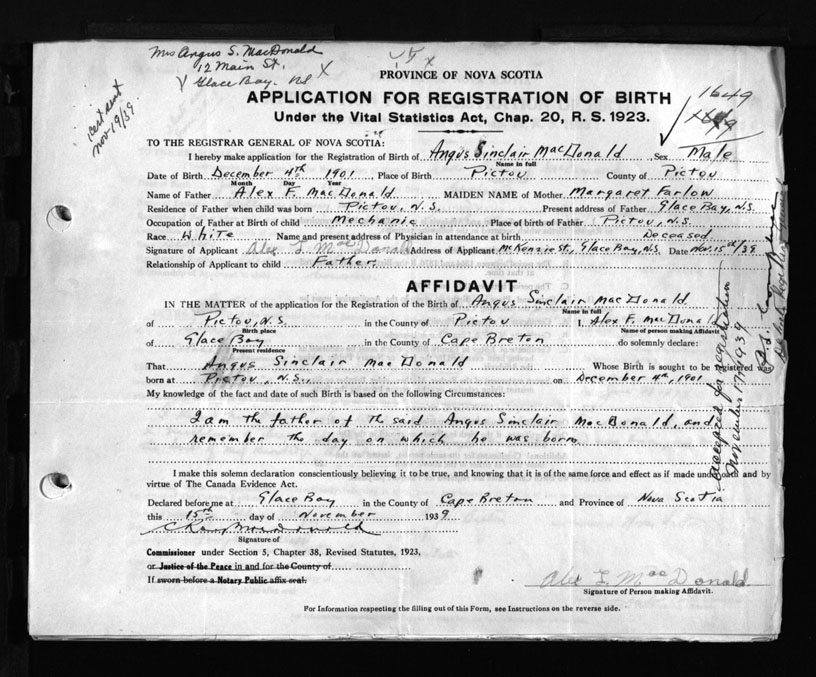 Mrs Angus S. MacDonald
12 Main St.
Glace Bay. NS
Cert sent
Nov 19/39
PROVINCE OF NOVA SCOTIA
1649
APPLICATION FOR REGISTRATION OF BIRTH
Under the Vital Statistics Act, Chap. 20, R. S. 1923.
TO THE REGISTRAR GENERAL OF NOVA SCOTIA:
I hereby make application for the Registration of Birth of Angus Sinclair MacDonald Sex Male
Name in full
Date of Birth December 4th 1901 Place of Birth Pictou County of Pictou
Month Day Year
Name of Father Alex F. MacDonald MAIDEN NAME of Mother Margaret Farlow
Residence of Father when child was born Pictou, N.S. Present address of Father Glace Bay, N.S.
Occupation of Father at Birth of child Mechanic Place of birth of Father Pictou, N.S.
Race White Name and present address of Physician in attendance at birth Deceased
Signature of Applicant Alex F. MacDonald Address of Applicant McKenzie St., Glace Bay, N.S. Date Nov. 15th/39
Relationship of Applicant to child Father.
AFFIDAVIT
IN THE MATTER of the application for the Registration of the Birth of Angus Sinclair MacDonald
Name in full
of Pictou, N.S. in the County of Pictou I, Alex F. MacDonald
Birth place Name of person making Affidavit
of Glace Bay in the County of Cape Breton do solemnly declare:
Present residence
That Angus Sinclair MacDonald Whose Birth is sought to be registered was
born at Pictou, N.S., on December 4th, 1901
My knowledge of the fact and date of such Birth is based on the following Circumstances:
I am the father of the said Angus Sinclair MacDonald, and
remember the day on which he was born
I make this solemn declaration conscientiously believing it to be true, and knowing that it is of the same force and effect as if made under oath and by
virtue of The Canada Evidence Act.
Declared before me at Glace Bay in the County of Cape Breton and Province of Nova Scotia
this 15th day of November 1939
Signature of
Commissioner under Section 5, Chapter 38, Revised Statutes, 1923,
or Justice of the Peace in and for the County of
If sworn before a Notary Public affix seal.
Alex F. MacDonald
Signature of Person making Affidavit.
For Information respecting the filling out of this Form, see Instructions on the reverse side.
accepted for registration
November 17 1939